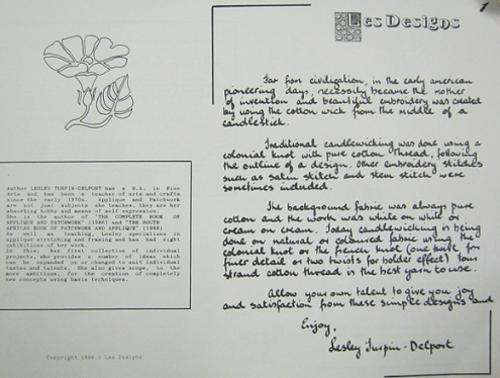 Author LESLEY TURPIN-DELPORT has a B.A. in Fine
Arts and has been a teacher of arts and crafts
since the early 1970s. Applique and Patchwork
are not just subjects she teaches, they are her
absorbing hobby and means of self expression.
She is the author of "THE COMPLETE BOOK OF
APPLIQUE AND PATCHWORK" (1986) and "THE SOUTH
AFRICAN BOOK OF PATCHWORK AND APPLIQUE" (1988)
As well as teaching, Lesley specialises in
applique stretching and framing and has had eight
exhibitions of her work.
In this her first book of individual
projects, she provides a number of ideas which
can be expanded on or changed to suit individual
tastes and talents. She also gives scope, to the
more ambitious, for the creation of completely
new concepts using basic techniques.
Copyright 1988: Les Designs
1
Les Designs
Far from civilization, in the early american
pioneering days, necessity became the mother
of invention and beautiful embroidery was created
by using the cotton wick from the middle of a
candlestick.
Traditional candlewicking was done using a
colonial knot with pure cotton thread, following
the outline of a design. Other embroidery stitches
such as satin stitch and stem stitch were
sometimes included.
The background fabric was always pure
cotton and the work was white on white or
cream on cream. Today candlewicking is being
done on natural or coloured fabric using the
colonial knot or the french knot (one twist for
finer detail or two twists for bolder effect) four
strand cotton thread is the best yarn to use.
Allow your own talent to give you joy
and satisfaction from these simple designs and
Enjoy,
Lesley Turpin-Delport